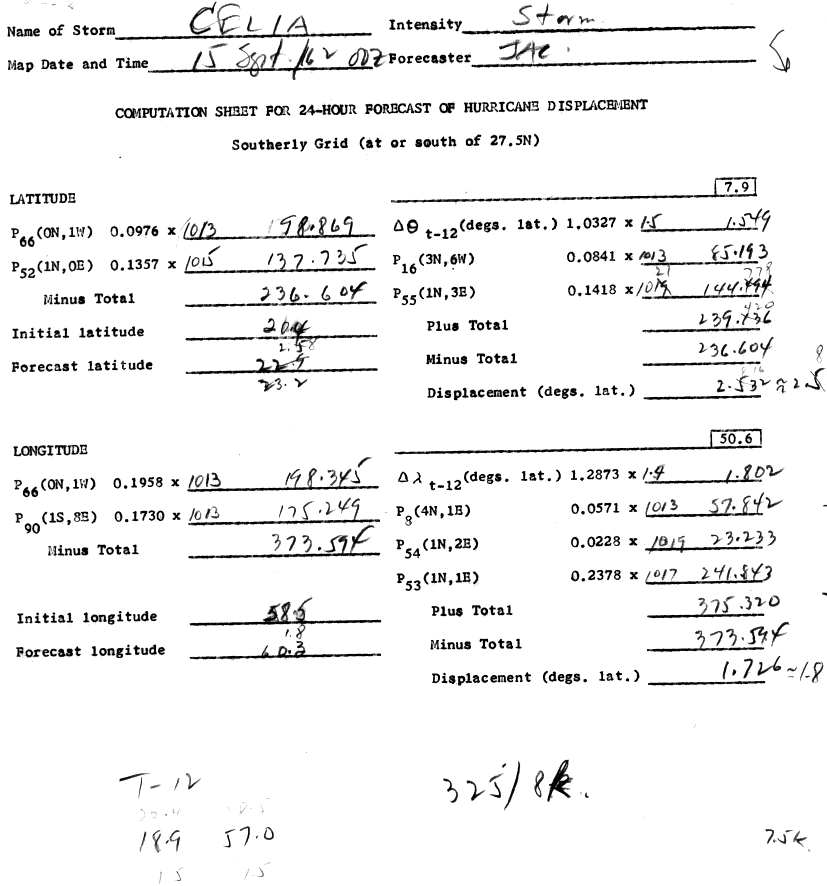 Name of Storm CELIA Intensity Storm
Map Date and Time 15 Sept /62 00Z Forecaster JAC.
COMPUTATION SHEET FOR 24-HOUR FORECAST OF HURRICANE DISPLACEMENT
Southerly Grid (at or south of 27.5N)
LATITUDE 7.9
P66(0N,1W) 0.0976 x 1013 98.869 Δθ t-12(degs. lat.) 1.0327 x 1.5 1.549
P52(1N,0E) 0.1357 x 1015 137.735 P16(3N,6W) 0.0841 x 1013 85.193
Minus Total 236.604 P55(1N,3E) 0.1418 x 1019 144.494
Initial latitude 20.4 Plus Total 239.136
2.58 Minus Total 236.604
Forecast latitude 22.9 Displacement (degs. lat.) 2.532 ≈ 2.5
23.2
LONGITUDE 50.6
P66(0N,1W) 0.1958 x 1013 198.345 Δλ t-12(degs. lat.) 1.2873 x 1.4 1.802
P90(1S,8E) 0.1730 x 1013 175.249 P8(4N,1E) 0.0571 x 1013 57.842
Minus Total 373.594 P54(1N,2E) 0.0228 x 1019 23.233
P53(1N,1E) 0.2378 x 1017 241.843
Initial longitude 58.5 Plus Total 375.320
1.8 Minus Total 373.594
Forecast longitude 60.3 Displacement (degs. lat.) 1.726 ≈ 1.8
T-12 325/8k.
18.9 57.0 7.5k
1.5 1.5